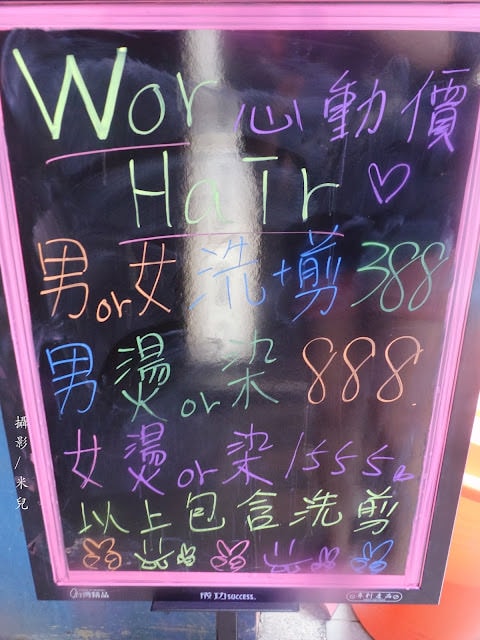 Wor 心動價
HaIr ♡
男or女 洗+剪 388
男燙or染 888
女燙or染 1555
以上包含洗剪
攝影/米兒
台灣精品
成功SUCCESS.
專利產品